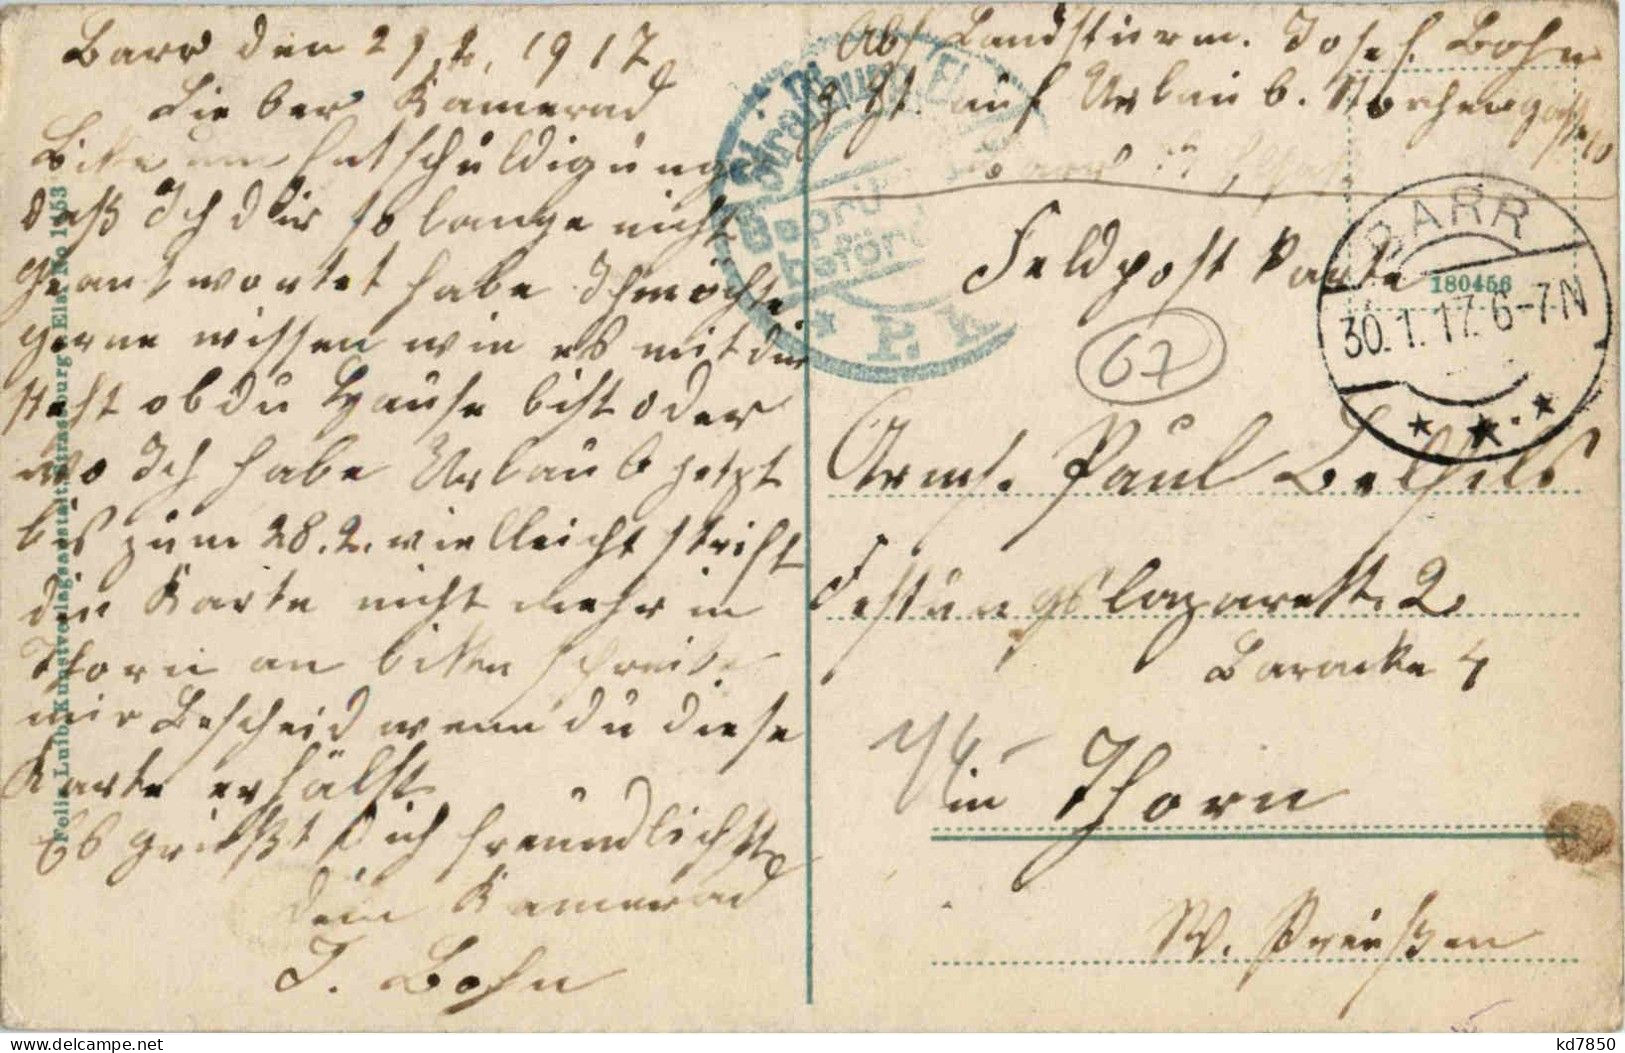 Barr den 29.1.1917
Lieber Kamerad
Bitte um Entschuldigung
daß Ich dir so lange nicht
geantwortet habe Ich möchte
gerne wissen wie es mit dir
steht ob du zu Hause bist oder
wo Ich habe Urlaub jetzt
bis zum 28.2. vielleicht trifft
die Karte nicht mehr in
Thorn an bitte schreibe
mir Bescheid wenn du diese
Karte erhälst
Es grüßt Dich freundlichst
dein Kamerad
J. Bohn
Felix Luib Kunstverlagsanstalt Strassburg Els. No 1453
Abs Landsturm. Josef. Bohn
z. Zt. auf Urlaub. Storchengasse
Barr
Feldpost Karte
67
Arms. Paul Belfils
Festungslazarett. 2.
Baracke 4
in Thorn
W. Preußen
BARR
30.1.17. 6-7N
* * *
180456
Geprüft
befördert
P.K.
kd7850